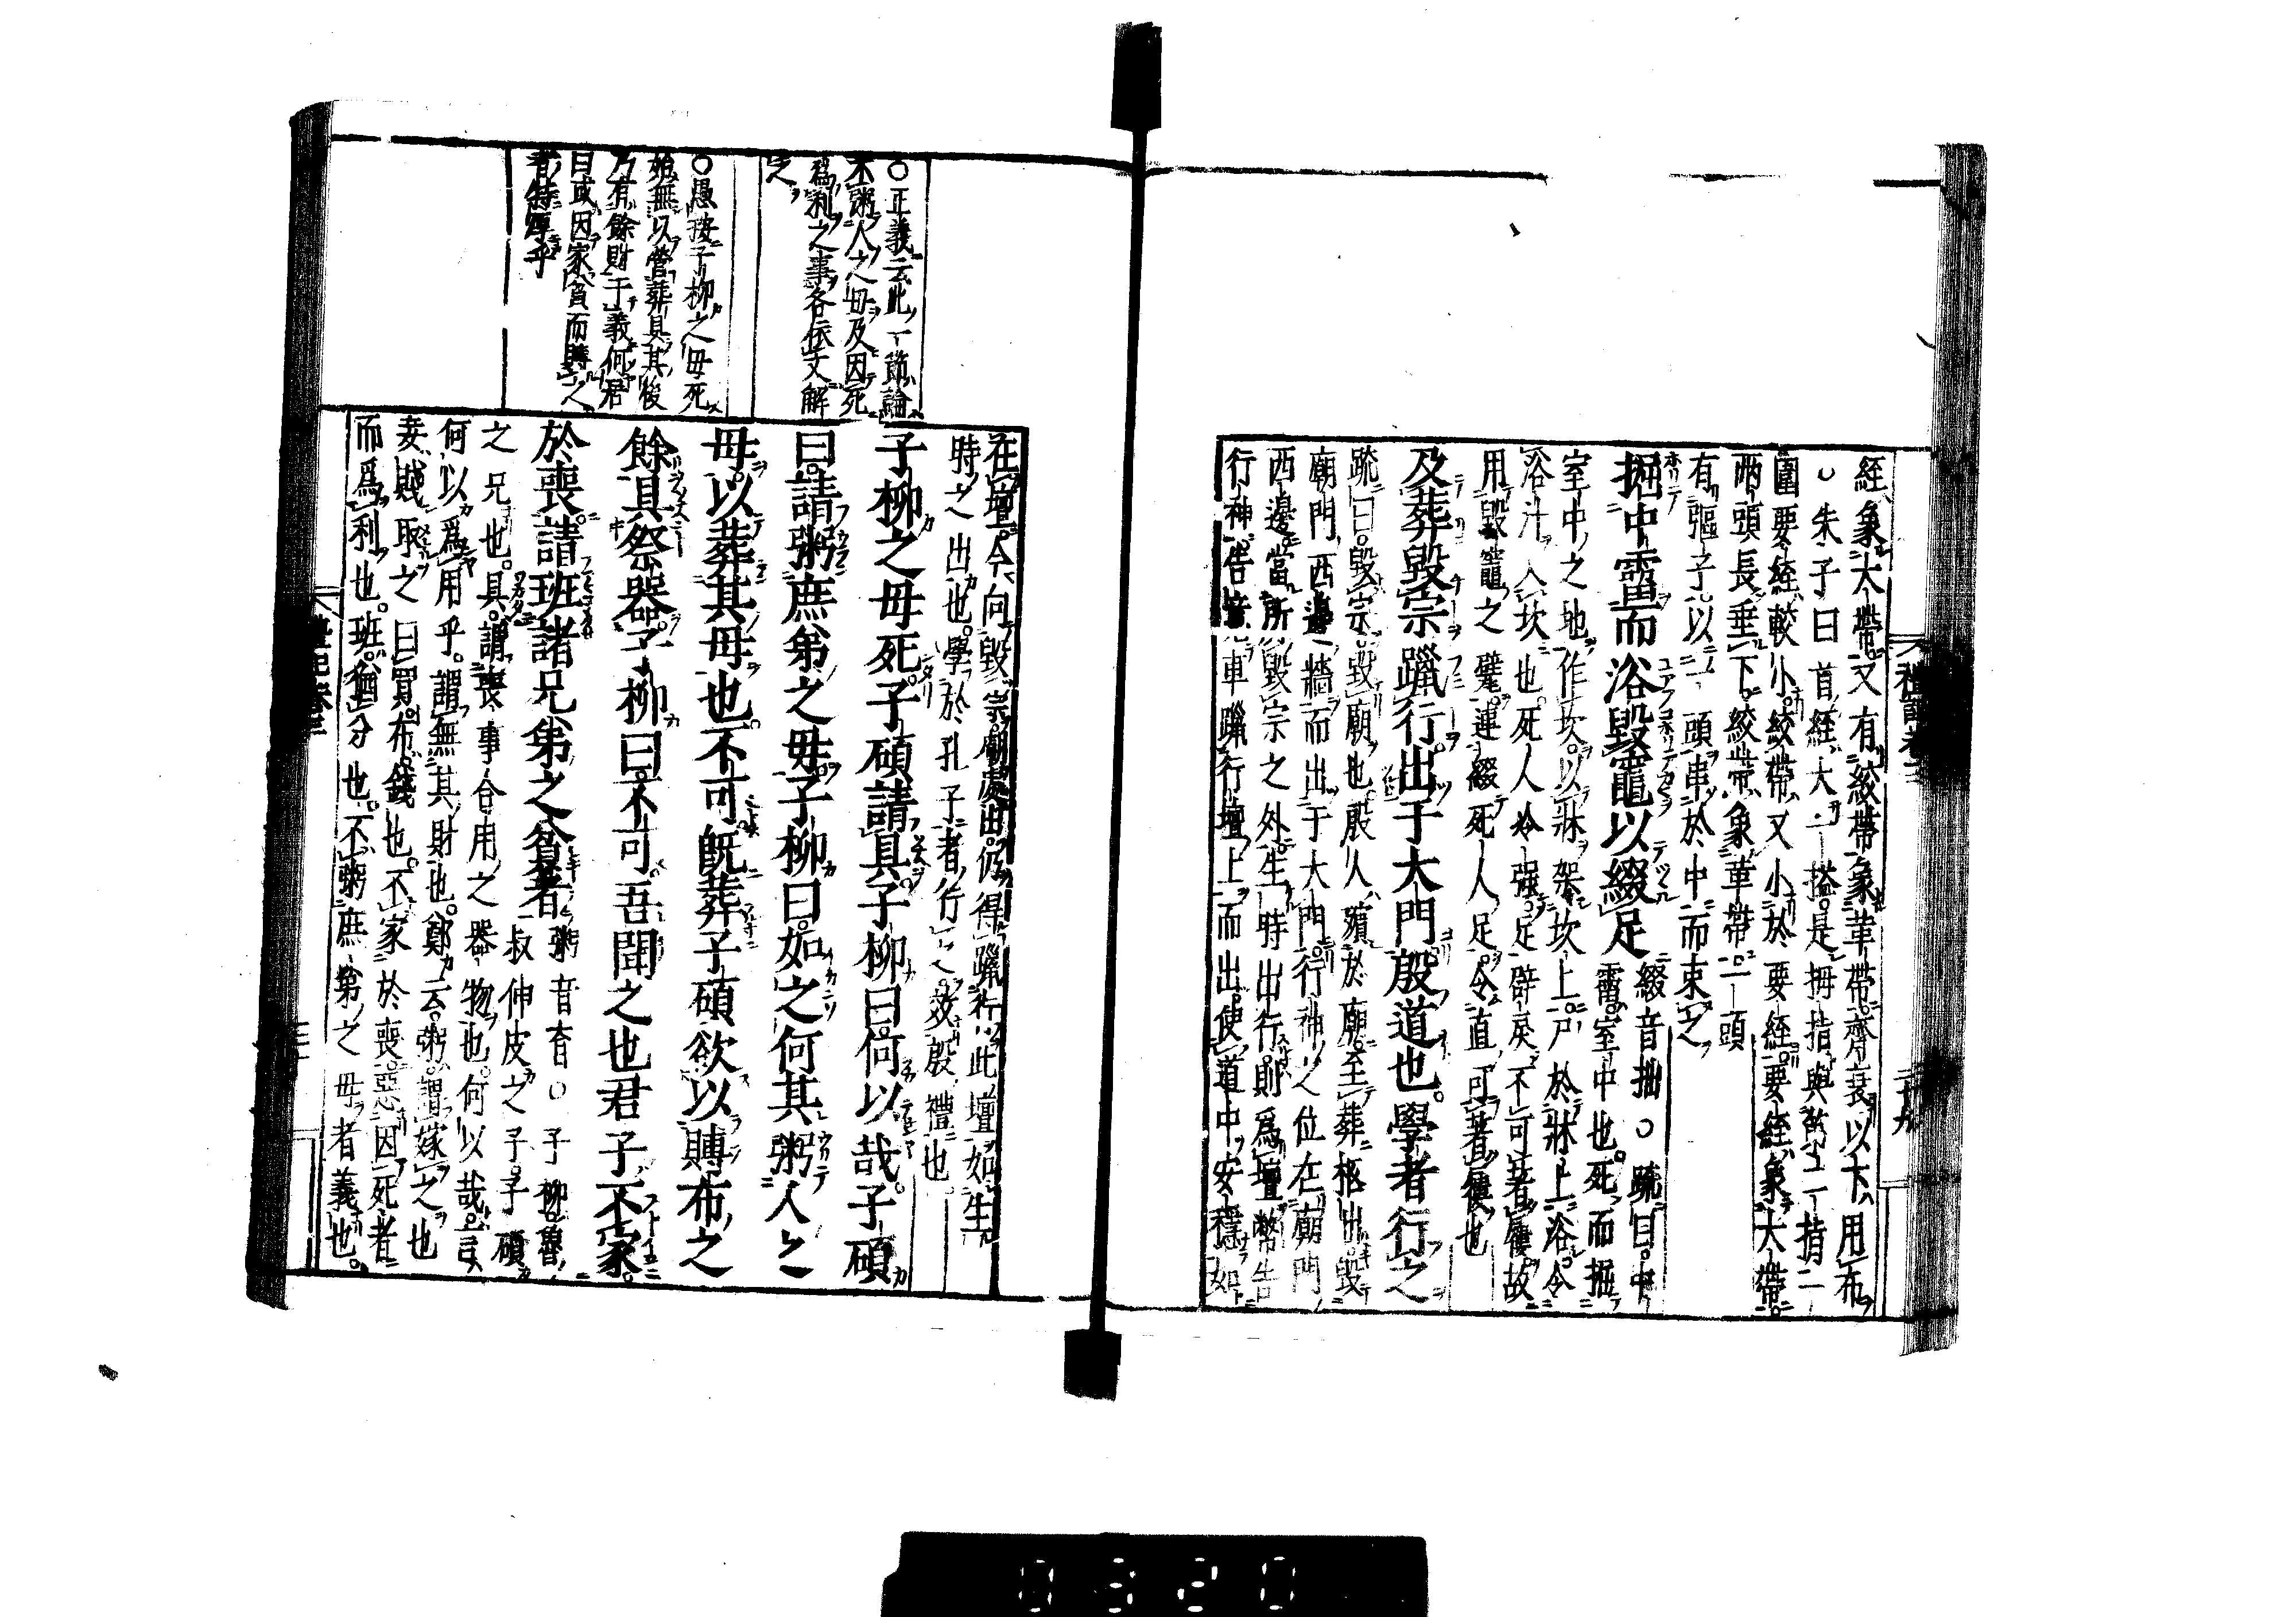 絰象大帶又有絞帶象革帶齊衰以下用布
○朱子曰首絰大一搤是拇指與第二指一
圍要絰較小絞帶又小於要絰要絰象大帶
兩頭長垂下絞帶象革帶一頭
有彄子以一頭串於中而束之
掘中霤而浴毀竈以綴足
綴音拙○疏曰中
霤室中也死而掘
室中之地作坎以牀架坎上尸於牀上浴令
浴汁入坎也死人冷强足辟戾不可著屨故
用毀竈之甓連綴死人足令直可著屨也
及葬毀宗躐行出于大門殷道也學者行之
疏曰毀宗毀廟也殷人殯於廟至葬柩出毀
廟門西邊牆而出于大門行神之位在廟門
西邊當所毀宗之外生時出行則爲壇幣告
行神告竟車躐行壇上而出使道中安穩如
在壇今向毀宗廟處出仍得躐行此壇如生
時之出也學於孔子者行之效殷禮也
○正義云此一節論
不粥人之母及因死
爲利之事各依文解
之
子柳之母死子碩請具子柳曰何以哉子碩
曰請粥庶弟之母子柳曰如之何其粥人之
母以葬其母也不可旣葬子碩欲以賻布之
餘具祭器子柳曰不可吾聞之也君子不家
於喪請班諸兄弟之貧者
○愚按子柳之母死
始無以營葬具其後
乃有餘財于義何君
曰或因家貧而賻之
者特厚乎
粥音育○子柳魯
叔仲皮之子子碩
之兄也具謂喪事合用之器物也何以哉言
何以爲用乎謂無其財也鄭云粥謂嫁之也
妾賤取之曰買布錢也不家於喪惡因死者
而爲利也班猶分也不粥庶弟之母者義也